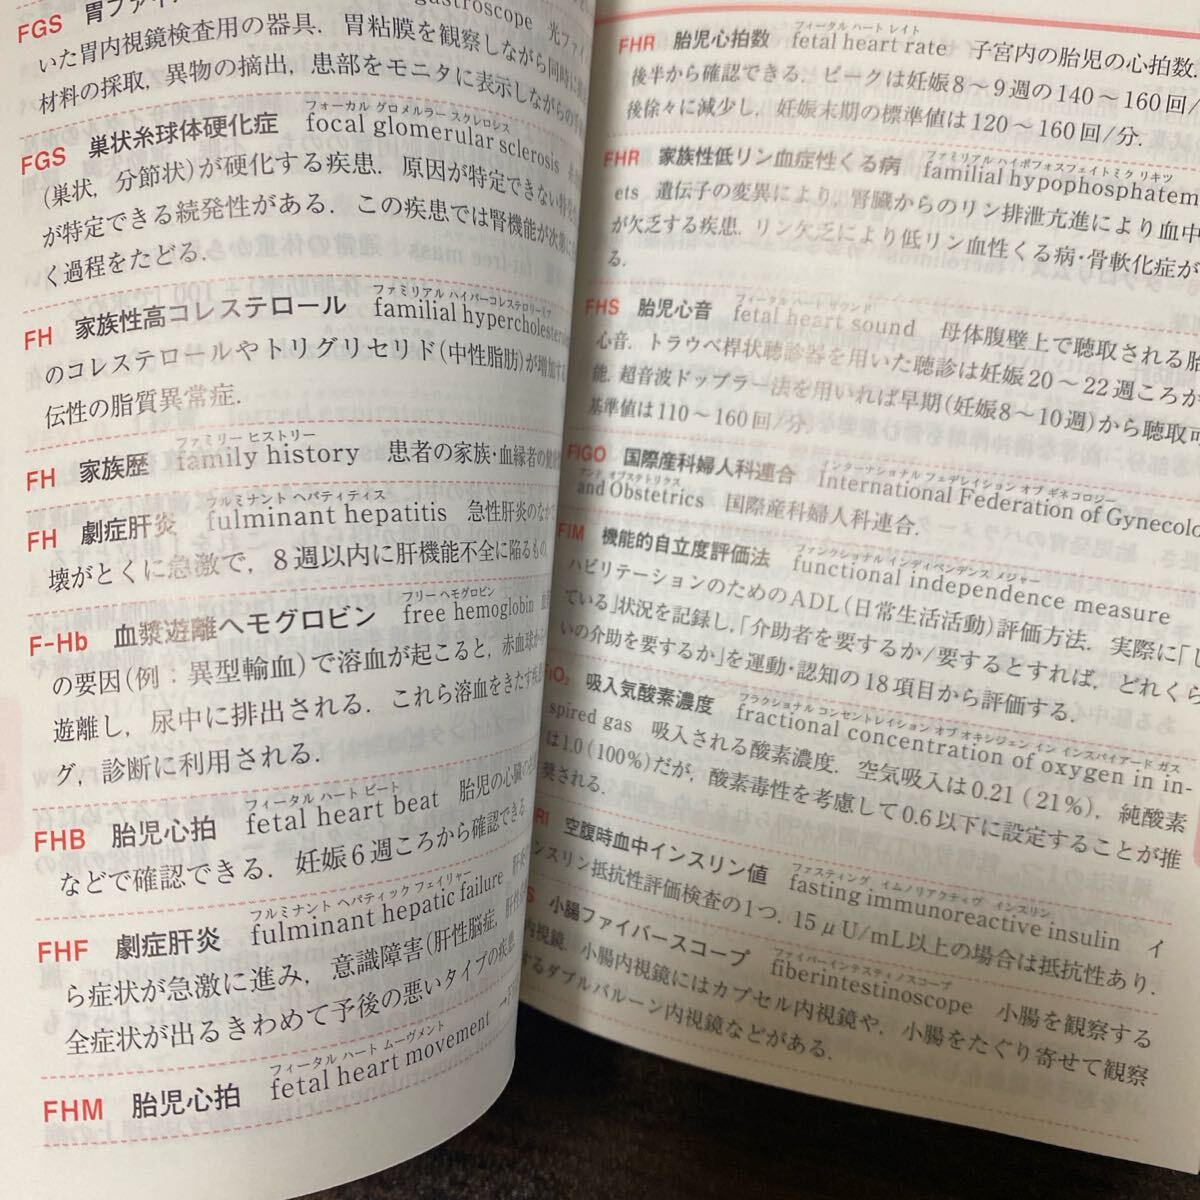 FGS 胃ファイ
gastroscope 光ファイ
いた胃内視鏡検査用の器具．胃粘膜を観察しながら同時に
材料の採取，異物の摘出，患部をモニタに表示しながらの
フォーカル グロメルラー スクレロシス
FGS 巣状糸球体硬化症 focal glomerular sclerosis
(巣状，分節状)が硬化する疾患．原因が特定できない特発
が特定できる続発性がある．この疾患では腎機能が次第に
く過程をたどる．
ファミリアル ハイパーコレステロリーミア
FH 家族性高コレステロール familial hypercholesterolem
のコレステロールやトリグリセリド(中性脂肪)が増加する
伝性の脂質異常症．
ファミリー ヒストリー
FH 家族歴 family history 患者の家族・血縁者の
フルミナント ヘパティティス
FH 劇症肝炎 fulminant hepatitis 急性肝炎のなかで
壊がとくに急激で，8週以内に肝機能不全に陥るもの
フリー ヘモグロビン
F-Hb 血漿遊離ヘモグロビン free hemoglobin
の要因(例：異型輸血)で溶血が起こると，赤血球から
遊離し，尿中に排出される．これら溶血をきたす疾患
グ，診断に利用される．
フィータル ハート ビート
FHB 胎児心拍 fetal heart beat 胎児の心臓の
などで確認できる．妊娠6週ころから確認できる．
フルミナント ヘパティック フェイリャー
FHF 劇症肝炎 fulminant hepatic failure
ら症状が急激に進み，意識障害(肝性脳症，
全症状が出るきわめて予後の悪いタイプの疾患
フィータル ハート ムーヴメント
FHM 胎児心拍 fetal heart movement
フィータル ハート レイト
FHR 胎児心拍数 fetal heart rate 子宮内の胎児の心拍数．
後半から確認できる．ピークは妊娠8～9週の140～160回/
後徐々に減少し，妊娠末期の標準値は120～160回/分．
ファミリアル ハイポフォスフェイトミク リキツ
FHR 家族性低リン血症性くる病 familial hypophosphatem
ets 遺伝子の変異により，腎臓からのリン排泄亢進により血中
が欠乏する疾患．リン欠乏により低リン血性くる病・骨軟化症が
る．
フィータル ハート サウンド
FHS 胎児心音 fetal heart sound 母体腹壁上で聴取される胎
心音．トラウベ桿状聴診器を用いた聴診は妊娠20～22週ころが
能．超音波ドップラー法を用いれば早期(妊娠8～10週)から聴取可
基準値は110～160回/分．
インターナショナル フェデレイション オブ ギネコロジー
FIGO 国際産科婦人科連合 International Federation of Gynecolo
アンド オブステトリクス
and Obstetrics 国際産科婦人科連合．
ファンクショナル インディペンデンス メジャー
FIM 機能的自立度評価法 functional independence measure
ハビリテーションのためのADL(日常生活活動)評価方法．実際に「し
ている」状況を記録し，「介助者を要するか/要するとすれば，どれくら
いの介助を要するか」を運動・認知の18項目から評価する．
フラクショナル コンセントレイション オブ オキシジェン イン インスパイアード ガス
FiO₂ 吸入気酸素濃度 fractional concentration of oxygen in in-
spired gas 吸入される酸素濃度．空気吸入は0.21(21%)，純酸素
は1.0(100%)だが，酸素毒性を考慮して0.6以下に設定することが推
奨される．
ファスティング イムノリアクティヴ インスリン
RI 空腹時血中インスリン値 fasting immunoreactive insulin イ
ンスリン抵抗性評価検査の1つ．15μU/mL以上の場合は抵抗性あり．
ファイバーインテスティノスコープ
S 小腸ファイバースコープ fiberintestinoscope 小腸を観察する
内視鏡．小腸内視鏡にはカプセル内視鏡や，小腸をたぐり寄せて観察
するダブルバルーン内視鏡などがある．